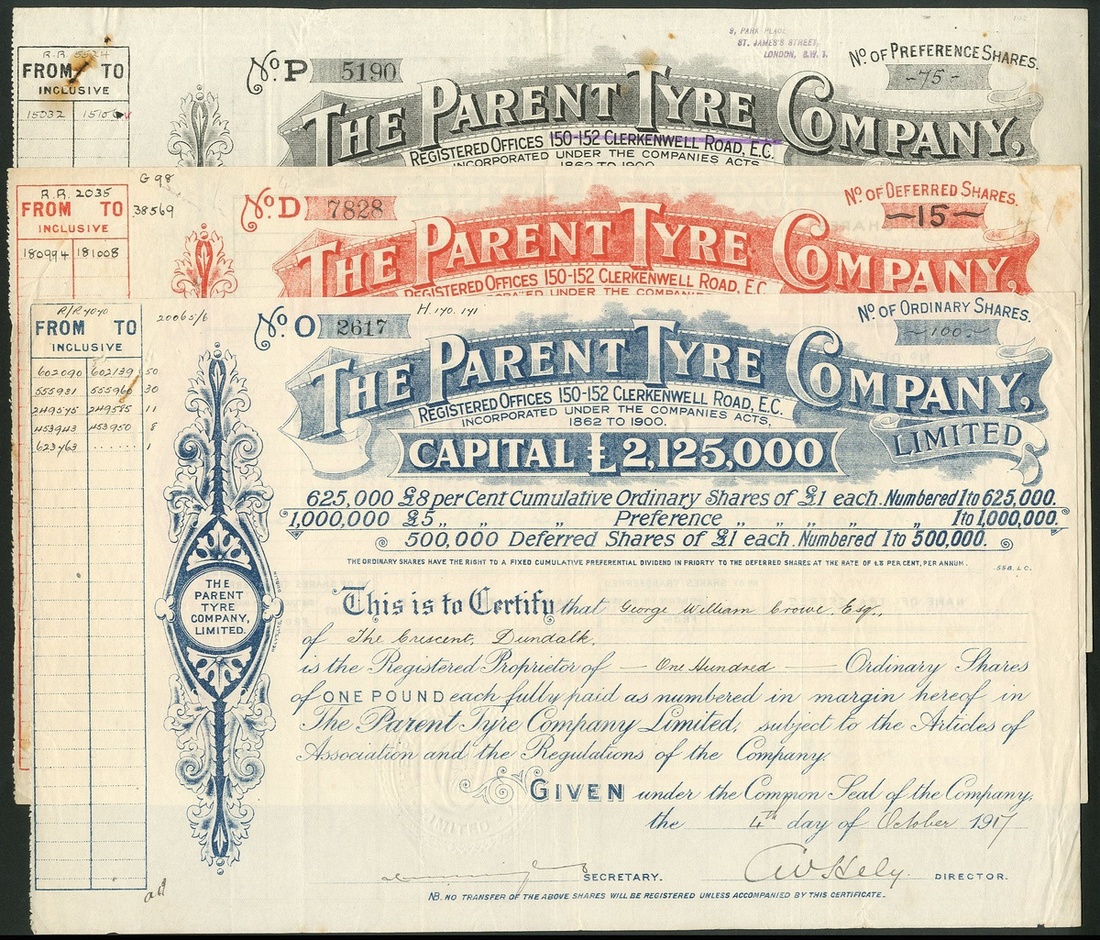 9, PARK PLACE,
ST. JAMES'S STREET,
LONDON, S.W. 1.
R.R. 5524
FROM TO
INCLUSIVE
15032 15106
No. P 5190
No. OF PREFERENCE SHARES.
-75-
THE PARENT TYRE COMPANY,
REGISTERED OFFICES 150-152 CLERKENWELL ROAD, E.C.
INCORPORATED UNDER THE COMPANIES ACTS,
1862 TO 1900.
R.R. 2035
FROM TO
INCLUSIVE
180994 181008
G 98
38569
No. D 7828
No. OF DEFERRED SHARES.
-15-
THE PARENT TYRE COMPANY,
REGISTERED OFFICES 150-152 CLERKENWELL ROAD, E.C.
INCORPORATED UNDER THE COMPANIES
R/R 4040
FROM TO
INCLUSIVE
602090 602139 50
555931 555960 30
249575 249585 11
453943 453950 8
623463 ....... 1
20065/6
No. O 2617
H. 170. 171
No. OF ORDINARY SHARES.
-100-
THE PARENT TYRE COMPANY,
REGISTERED OFFICES 150-152 CLERKENWELL ROAD, E.C.
INCORPORATED UNDER THE COMPANIES ACTS,
1862 TO 1900.
LIMITED
CAPITAL £2,125,000
625,000 £8 per Cent Cumulative Ordinary Shares of £1 each. Numbered 1 to 625,000.
1,000,000 £5 ,, ,, ,, Preference ,, ,, ,, ,, 1 to 1,000,000.
500,000 Deferred Shares of £1 each. Numbered 1 to 500,000.
THE ORDINARY SHARES HAVE THE RIGHT TO A FIXED CUMULATIVE PREFERENTIAL DIVIDEND IN PRIORTY TO THE DEFERRED SHARES AT THE RATE OF £8 PER CENT, PER ANNUM.
558. L.C.
THE
PARENT
TYRE
COMPANY,
LIMITED.
This is to Certify that George William Crowe, Esq.,
of The Crescent, Dundalk,
is the Registered Proprietor of One Hundred Ordinary Shares
of ONE POUND each fully paid as numbered in margin hereof in
The Parent Tyre Company Limited, subject to the Articles of
Association and the Regulations of the Company.
GIVEN under the Common Seal of the Company,
the 4th day of October 1917
LIMITED
SECRETARY.
DIRECTOR.
NB. NO TRANSFER OF THE ABOVE SHARES WILL BE REGISTERED UNLESS ACCOMPANIED BY THIS CERTIFICATE.